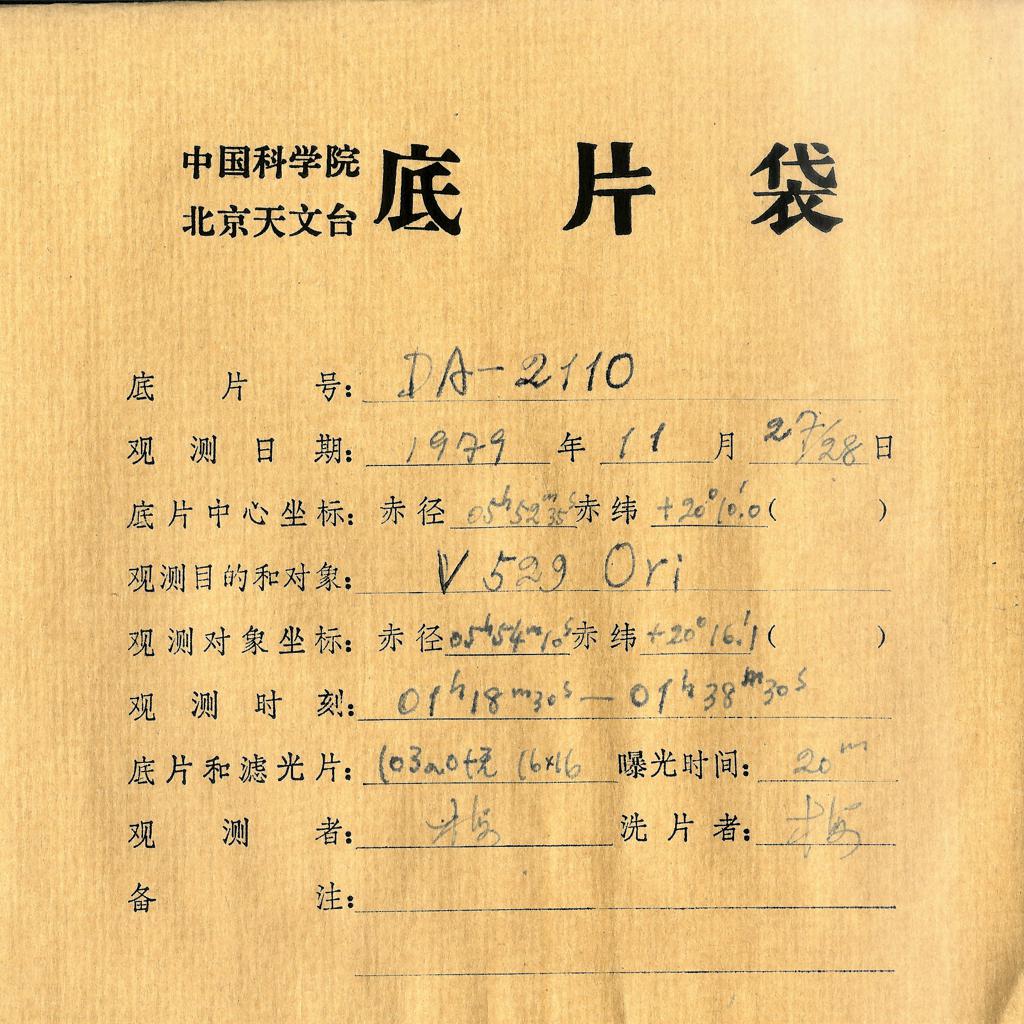 中国科学院
北京天文台
底片袋
底片号：DA-2110
观测日期：1979年11月27/28日
底片中心坐标：赤径05ʰ52ᵐ35ˢ赤纬+20°10.′0( )
观测目的和对象：V529 Ori
观测对象坐标：赤径05ʰ54ᵐ10ˢ赤纬+20°16.′1( )
观测时刻：01ʰ18ᵐ30ˢ—01ʰ38ᵐ30ˢ
底片和滤光片：103aO+无 16×16 曝光时间：20ᵐ
观测者：梅 洗片者：梅
备注：